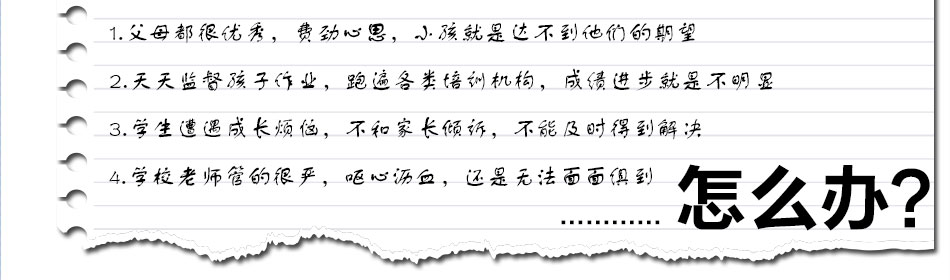 1.父母都很优秀，费劲心思，小孩就是达不到他们的期望
2.天天监督孩子作业，跑遍各类培训机构，成绩进步就是不明显
3.学生遭遇成长烦恼，不和家长倾诉，不能及时得到解决
4.学校老师管的很严，呕心沥血，还是无法面面俱到
............怎么办?